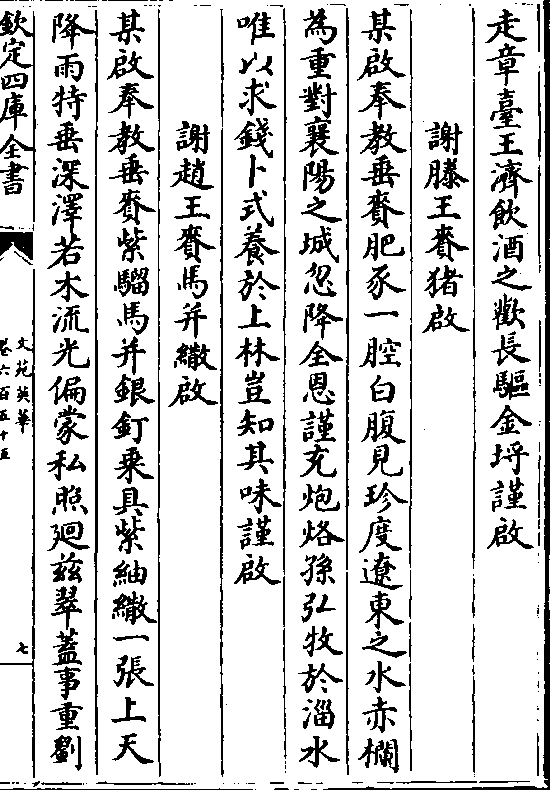 走章臺王濟飲酒之歡長驅金埒謹啟
謝滕王賚猪啟
某啟奉教垂賚肥豕一腔白腹見珍度遼東之水赤欄
為重對襄陽之城忽降全恩謹充炮烙孫弘牧於淄水
唯以求錢卜式養於上林豈知其味謹啟
謝趙王賚馬并繖啟
某啟奉教垂賚紫騮馬并銀釘乗具紫紬繖一張上天
降雨特垂深澤若木流光偏蒙私照廻兹翠蓋事重劉
欽定四庫全書
文苑英華
卷六百五十五
七